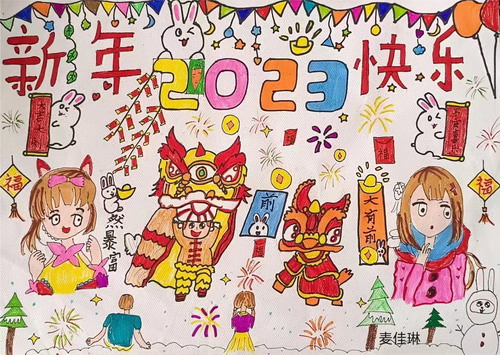 新年 2023 快乐
福
福
福
然
暴
富
前
大有前
麦佳琳